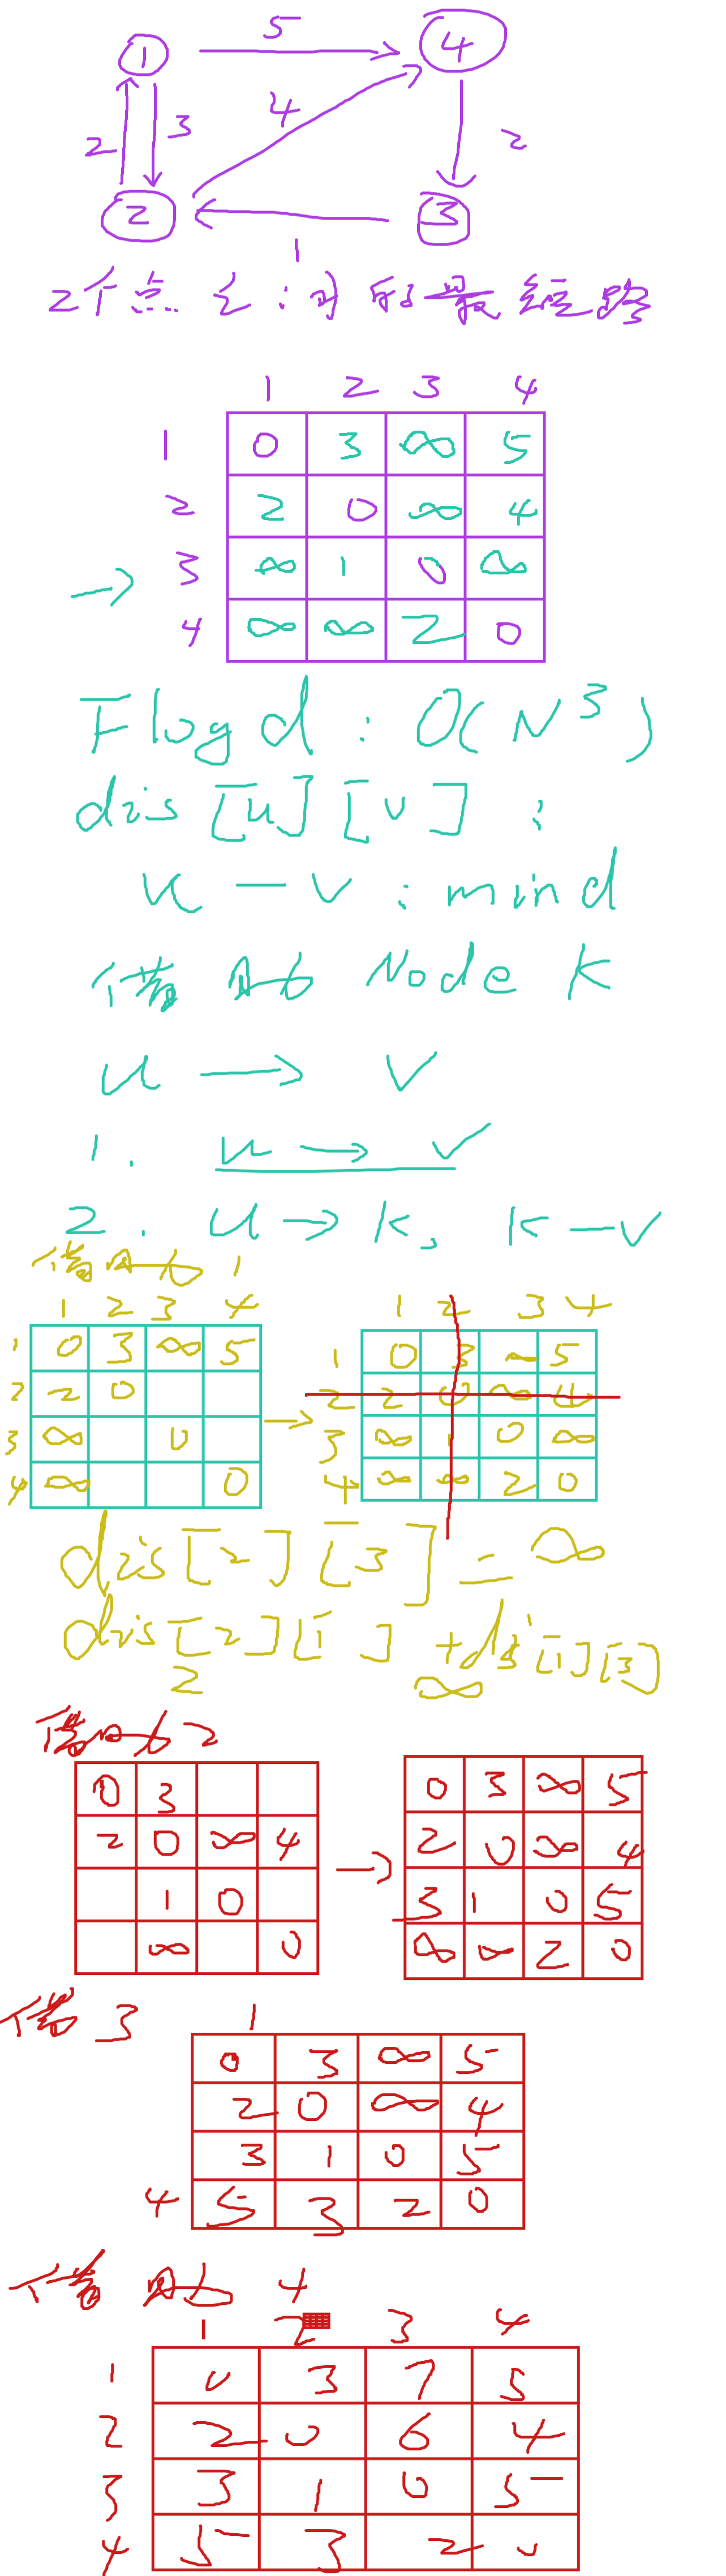 5
1 4
2 3 4 2
2 3
1
2个点之间的最短路
1 2 3 4
1 0 3 ∞ 5
2 2 0 ∞ 4
→ 3 ∞ 1 0 ∞
4 ∞ ∞ 2 0
Floyd : O(N³)
dis[u][v] :
u — v : mind
借助 Node K
u → v
1. u → v
2. u → k, k — v
借助 1
1 2 3 4
1 0 3 ∞ 5
2 2 0
3 ∞ 0
4 ∞ 0
→
1 2 3 4
1 0 3 ∞ 5
2 2 0 ∞ 4
3 ∞ 1 0 ∞
4 ∞ ∞ 2 0
dis[2][3] = ∞
dis[2][1] + dis[1][3]
2 ∞
借助 2
0 3
2 0 ∞ 4
1 0
∞ 0
→
0 3 ∞ 5
2 0 ∞ 4
3 1 0 5
∞ ∞ 2 0
借 3
1
0 3 ∞ 5
2 0 ∞ 4
3 1 0 5
4 5 3 2 0
借助 4
1 2 3 4
1 0 3 7 5
2 2 0 6 4
3 3 1 0 5
4 5 3 2 0